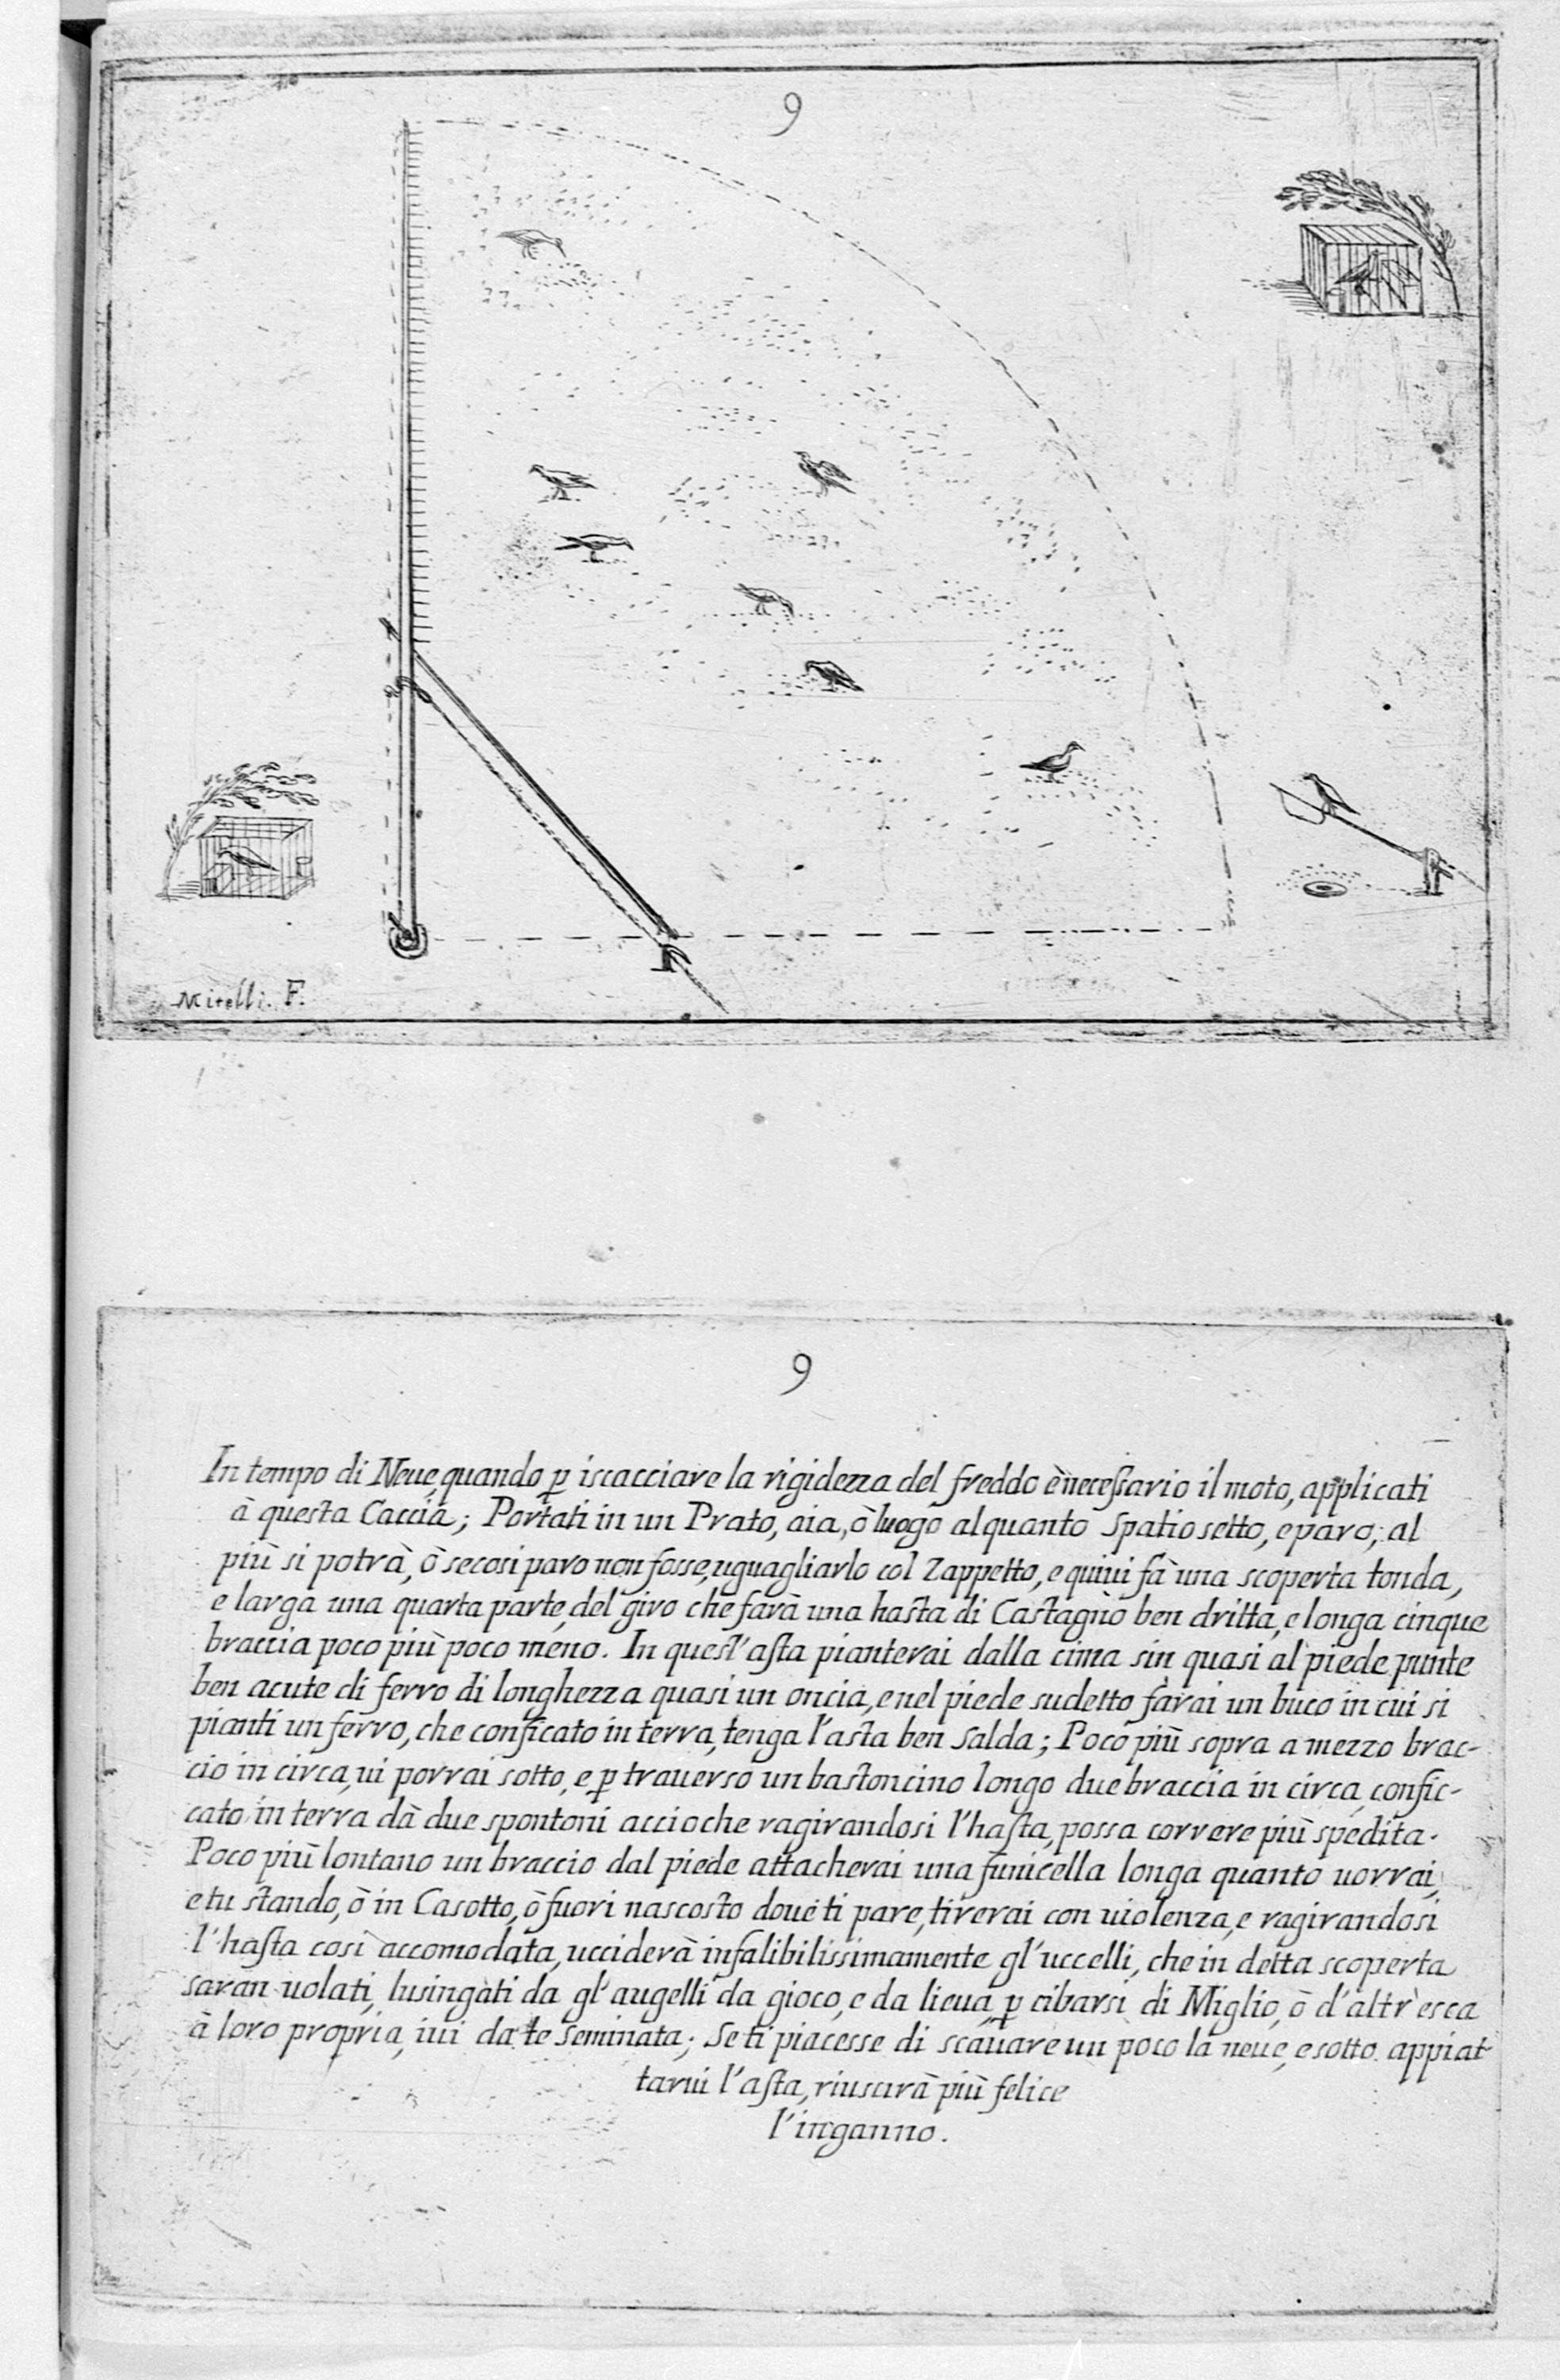 9
Mitelli. F.
9
In tempo di Neue, quando ꝑ iscacciare la rigidezza del freddo è neceſsario il moto, applicati
à questa Caccia; Portati in un Prato, aia, ò luogo alquanto Spatiosetto, e paro; al
più si potrà, ò se cosi paro non fosse, uguagliarlo col Zappetto, e quiui fà una scoperta tonda,
e larga una quarta parte, del giro che farà una hasta di Castagno ben dritta, e longa cinque
braccia poco più poco meno. In quest'aſta pianterai dalla cima sin quasi al piede punte
ben acute di ferro di longhezza quasi un oncia, e nel piede sudetto farai un buco in cui si
pianti un ferro, che conficato in terra, tenga l'asta ben Salda; Poco più sopra a mezzo brac-
cio in circa, ui porrai sotto, e ꝑ trauerso un bastoncino longo due braccia in circa, confic-
cato in terra dà due spontoni accioche ragirandosi l'haſta, possa correre più spedita.
Poco più lontano un braccio dal piede attacherai una funicella longa quanto uorrai,
e tu stando, ò in Casotto, ò fuori nascosto doue ti pare, tirerai con uiolenza, e ragirandosi
l'haſta cosi accomodata, ucciderà infalibilissimamente gl'uccelli, che in detta scoperta
saran uolati, lusingati da gl'augelli da gioco, e da lieua, ꝑ cibarsi di Miglio, ò d'altr'esca
à loro propria, iui da te Seminata; Se ti piacesse di scauare un poco la neue, e sotto appiat-
tarui l'aſta, riuscirà più felice
l'inganno.